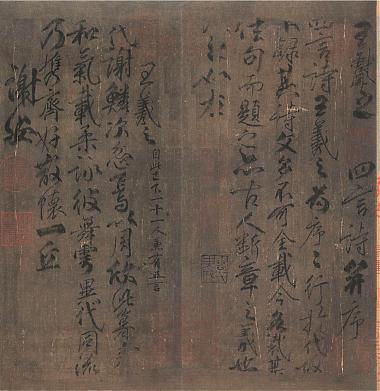 王獻之 四言詩并序
四言詩王羲之為序序行於代故
不錄其詩文多不可全載今各裁其
佳句而題之亦古人斷章之義也
王羲之 自此已下一十一人兼有五言
代謝鱗次忽焉以周欣此暮春
和氣載柔詠彼舞雩異代同流
乃攜齊好散懷一丘
謝安